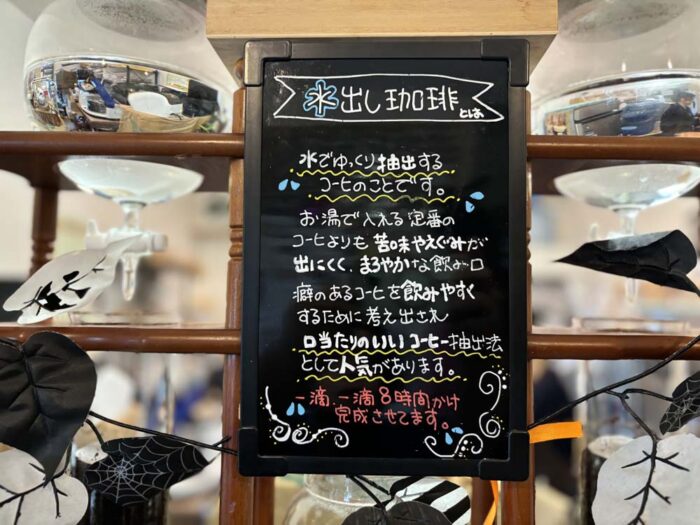 水出し珈琲とは
水でゆっくり抽出する
コーヒーのことです。
お湯で入れる定番の
コーヒーよりも苦味やえぐみが
出にくく、まろやかな飲み口
癖のあるコーヒーを飲みやすく
するために考え出され
口当たりのいいコーヒー抽出法
として人気があります。
一滴、一滴8時間かけ
完成させてます。